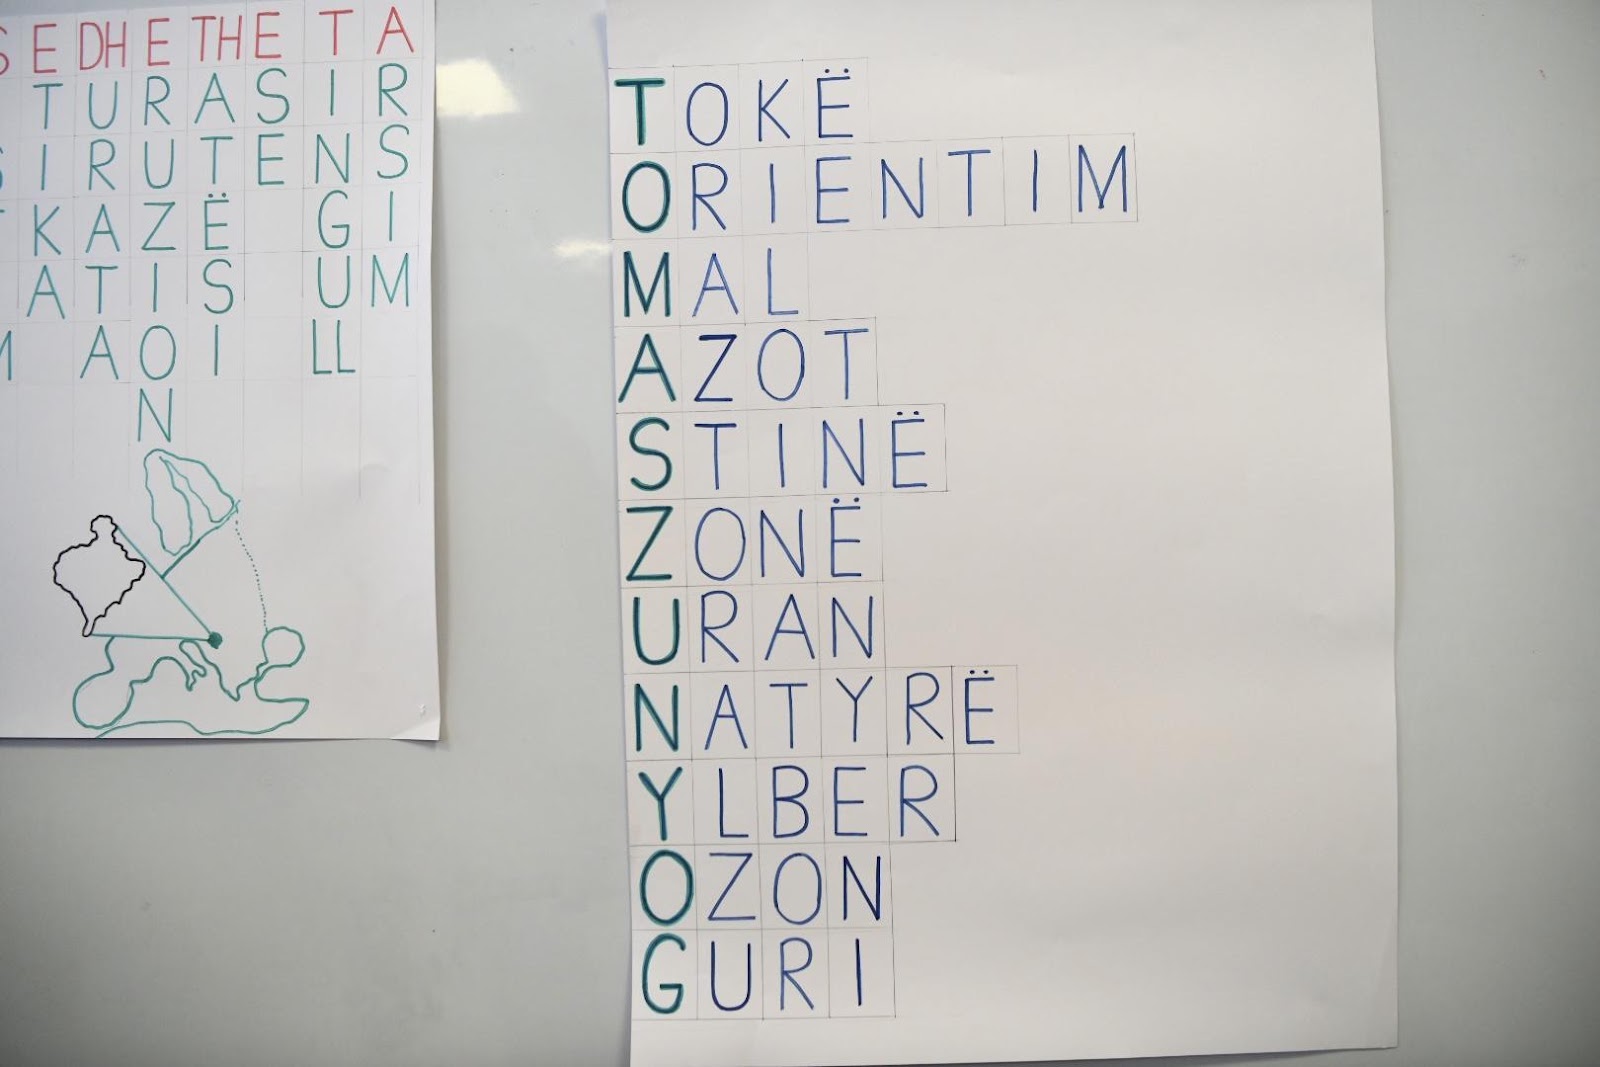 S E DH E TH E T A
T U R A S I R
S I R U T E N S
K A Z Ë G I
A T I S U M
M A O I LL
N
TOKË
ORIENTIM
MAL
AZOT
STINË
ZONË
URAN
NATYRË
YLBER
OZON
GURI